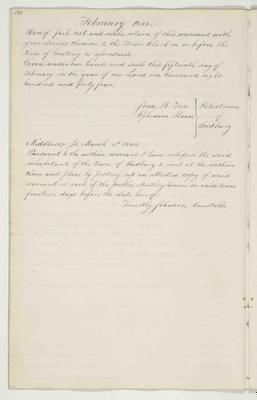 February 1844.
Hereof fail not and make return of this warrant with
your doings thereon to the Town Clerk on or before the
time of meeting as aforesaid.
Given under our hands and seals this fifteenth day of
February in the year of our Lord one thousand eight
hundred and forty four.
Selectmen
Ephraim Moore
of
Sudbury
Middlesex Ss March 4th 1844
Pursuant to the within warrant I have notified the said
inhabitants of the town of Sudbury to meet at the within
time and place by posting up an attested copy of said
warrant at each of the public Meeting houses in said town
fourteen days before the date hereof.
Timothy Johnson Constable